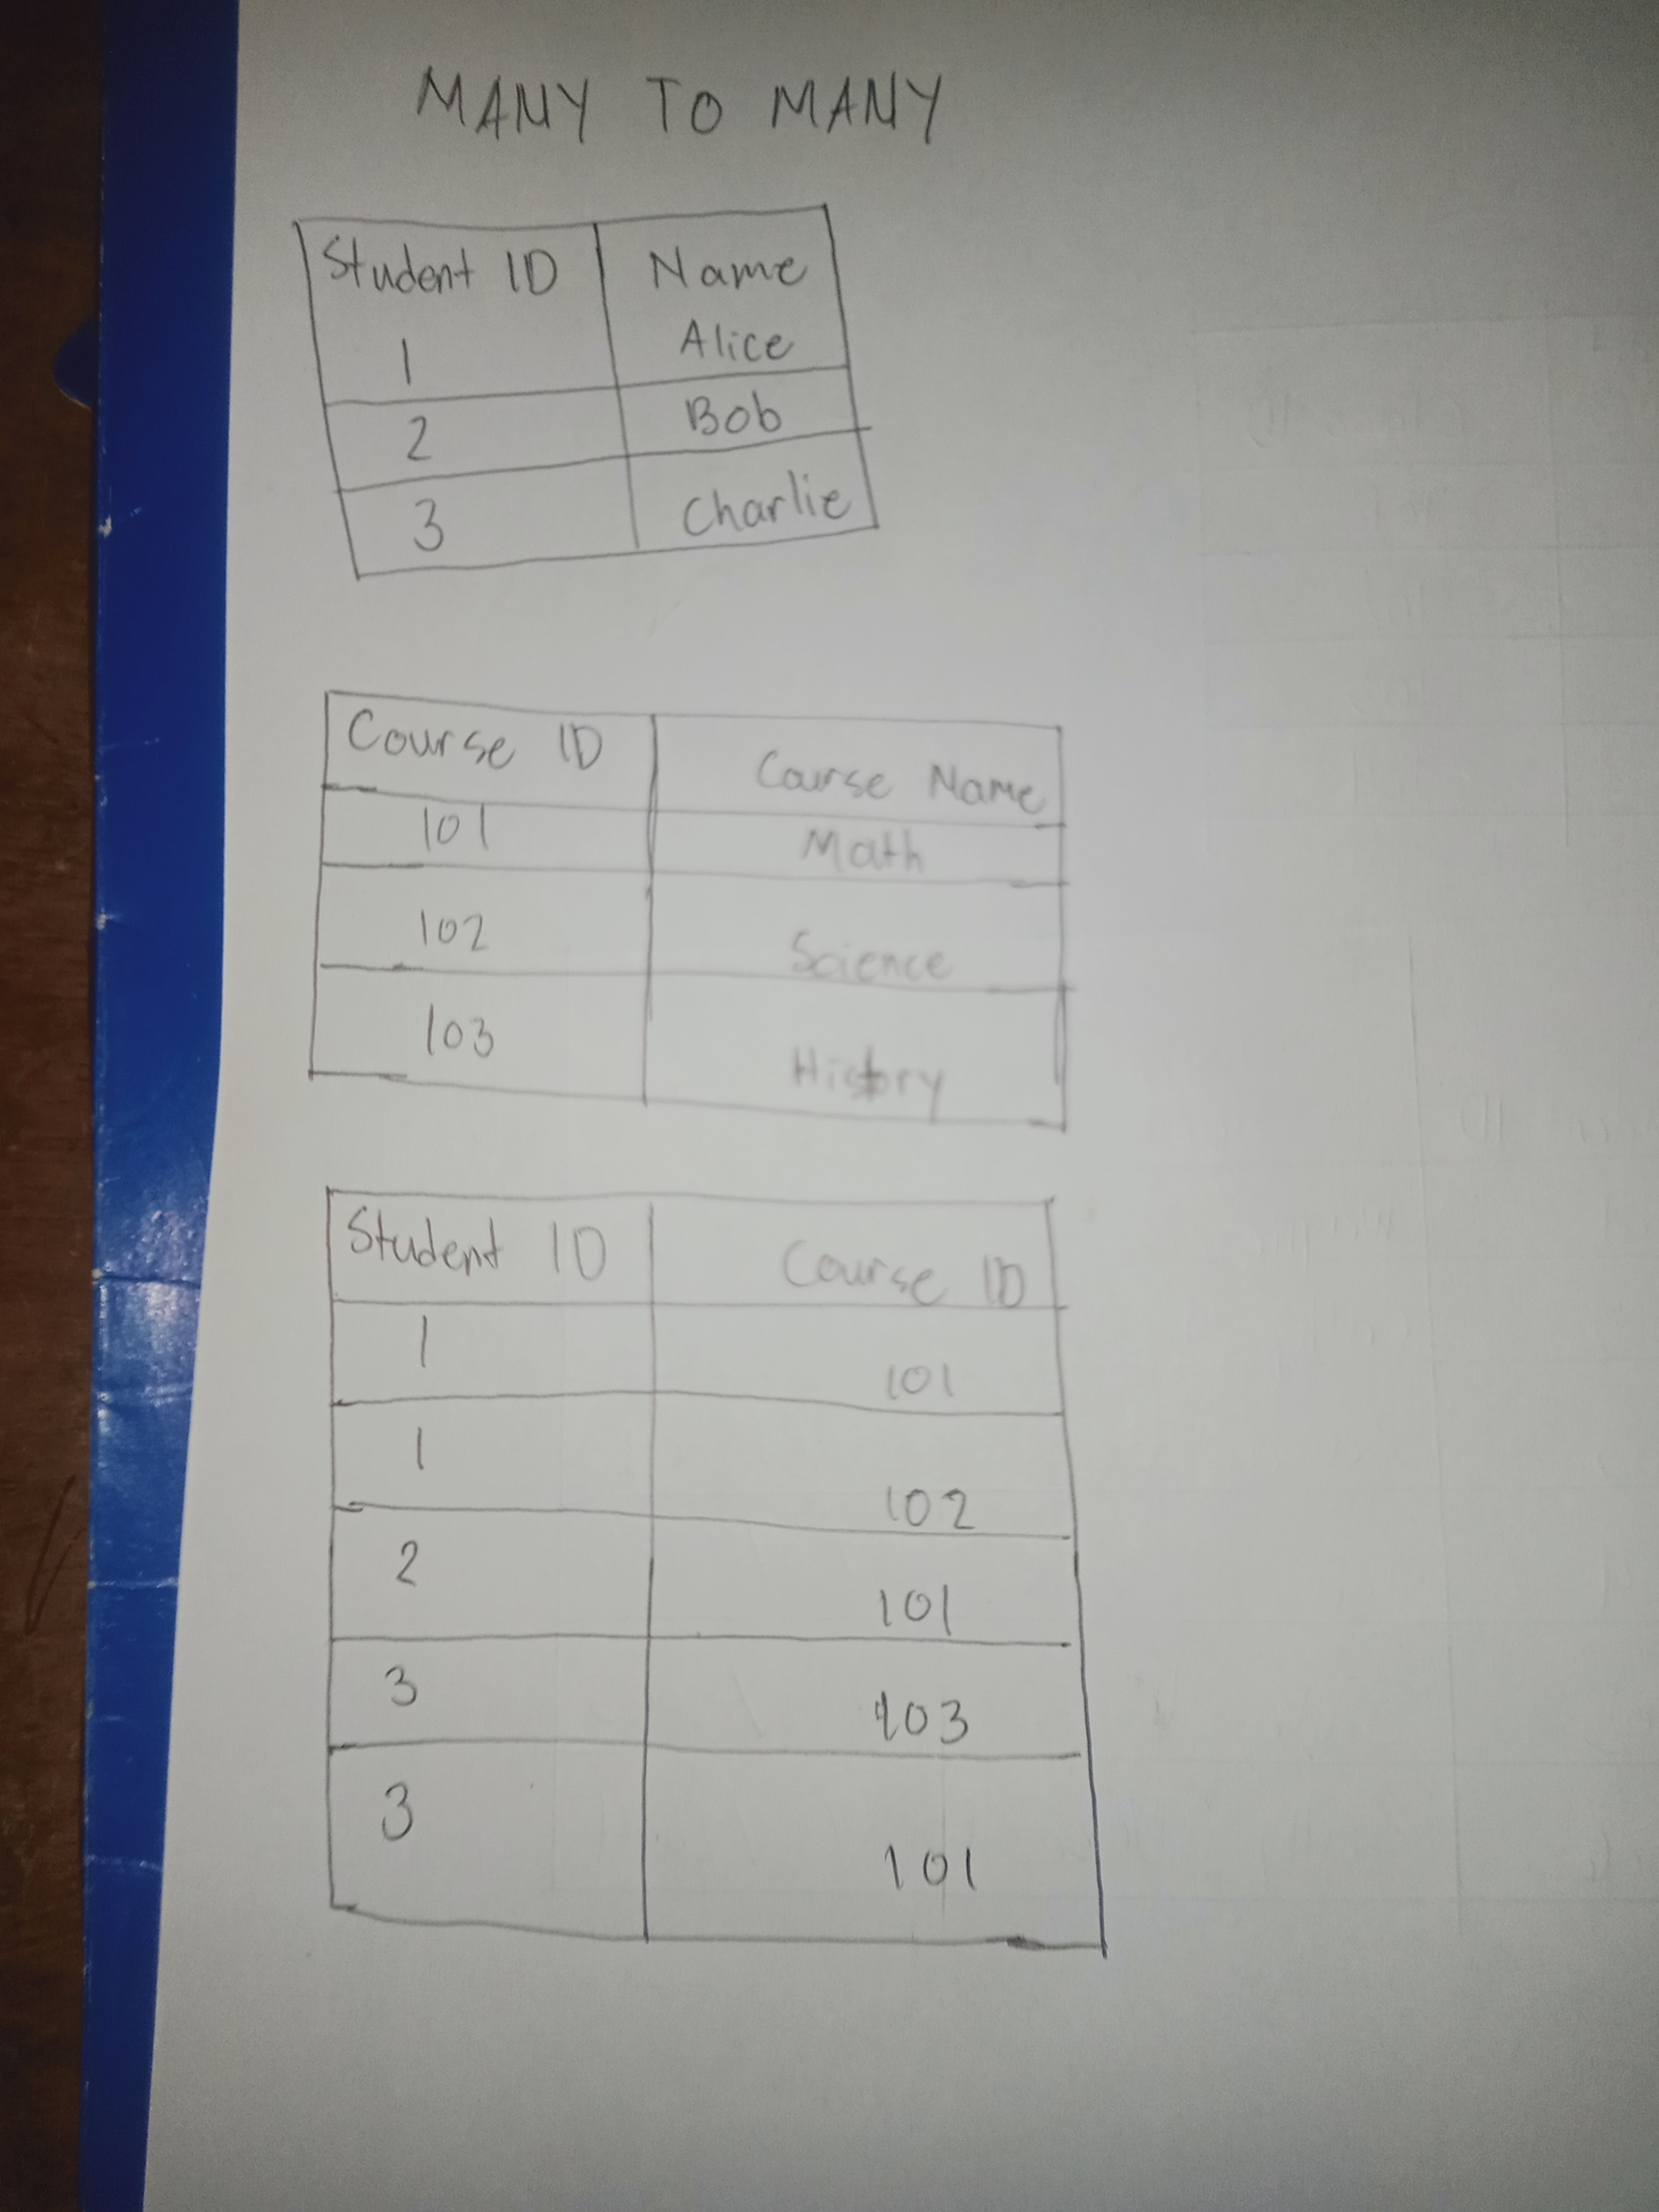 MANY TO MANY
Student ID Name
1 Alice
2 Bob
3 Charlie
Course ID Course Name
101 Math
102 Science
103 History
Student ID Course ID
1 101
1 102
2 101
3 103
3 101